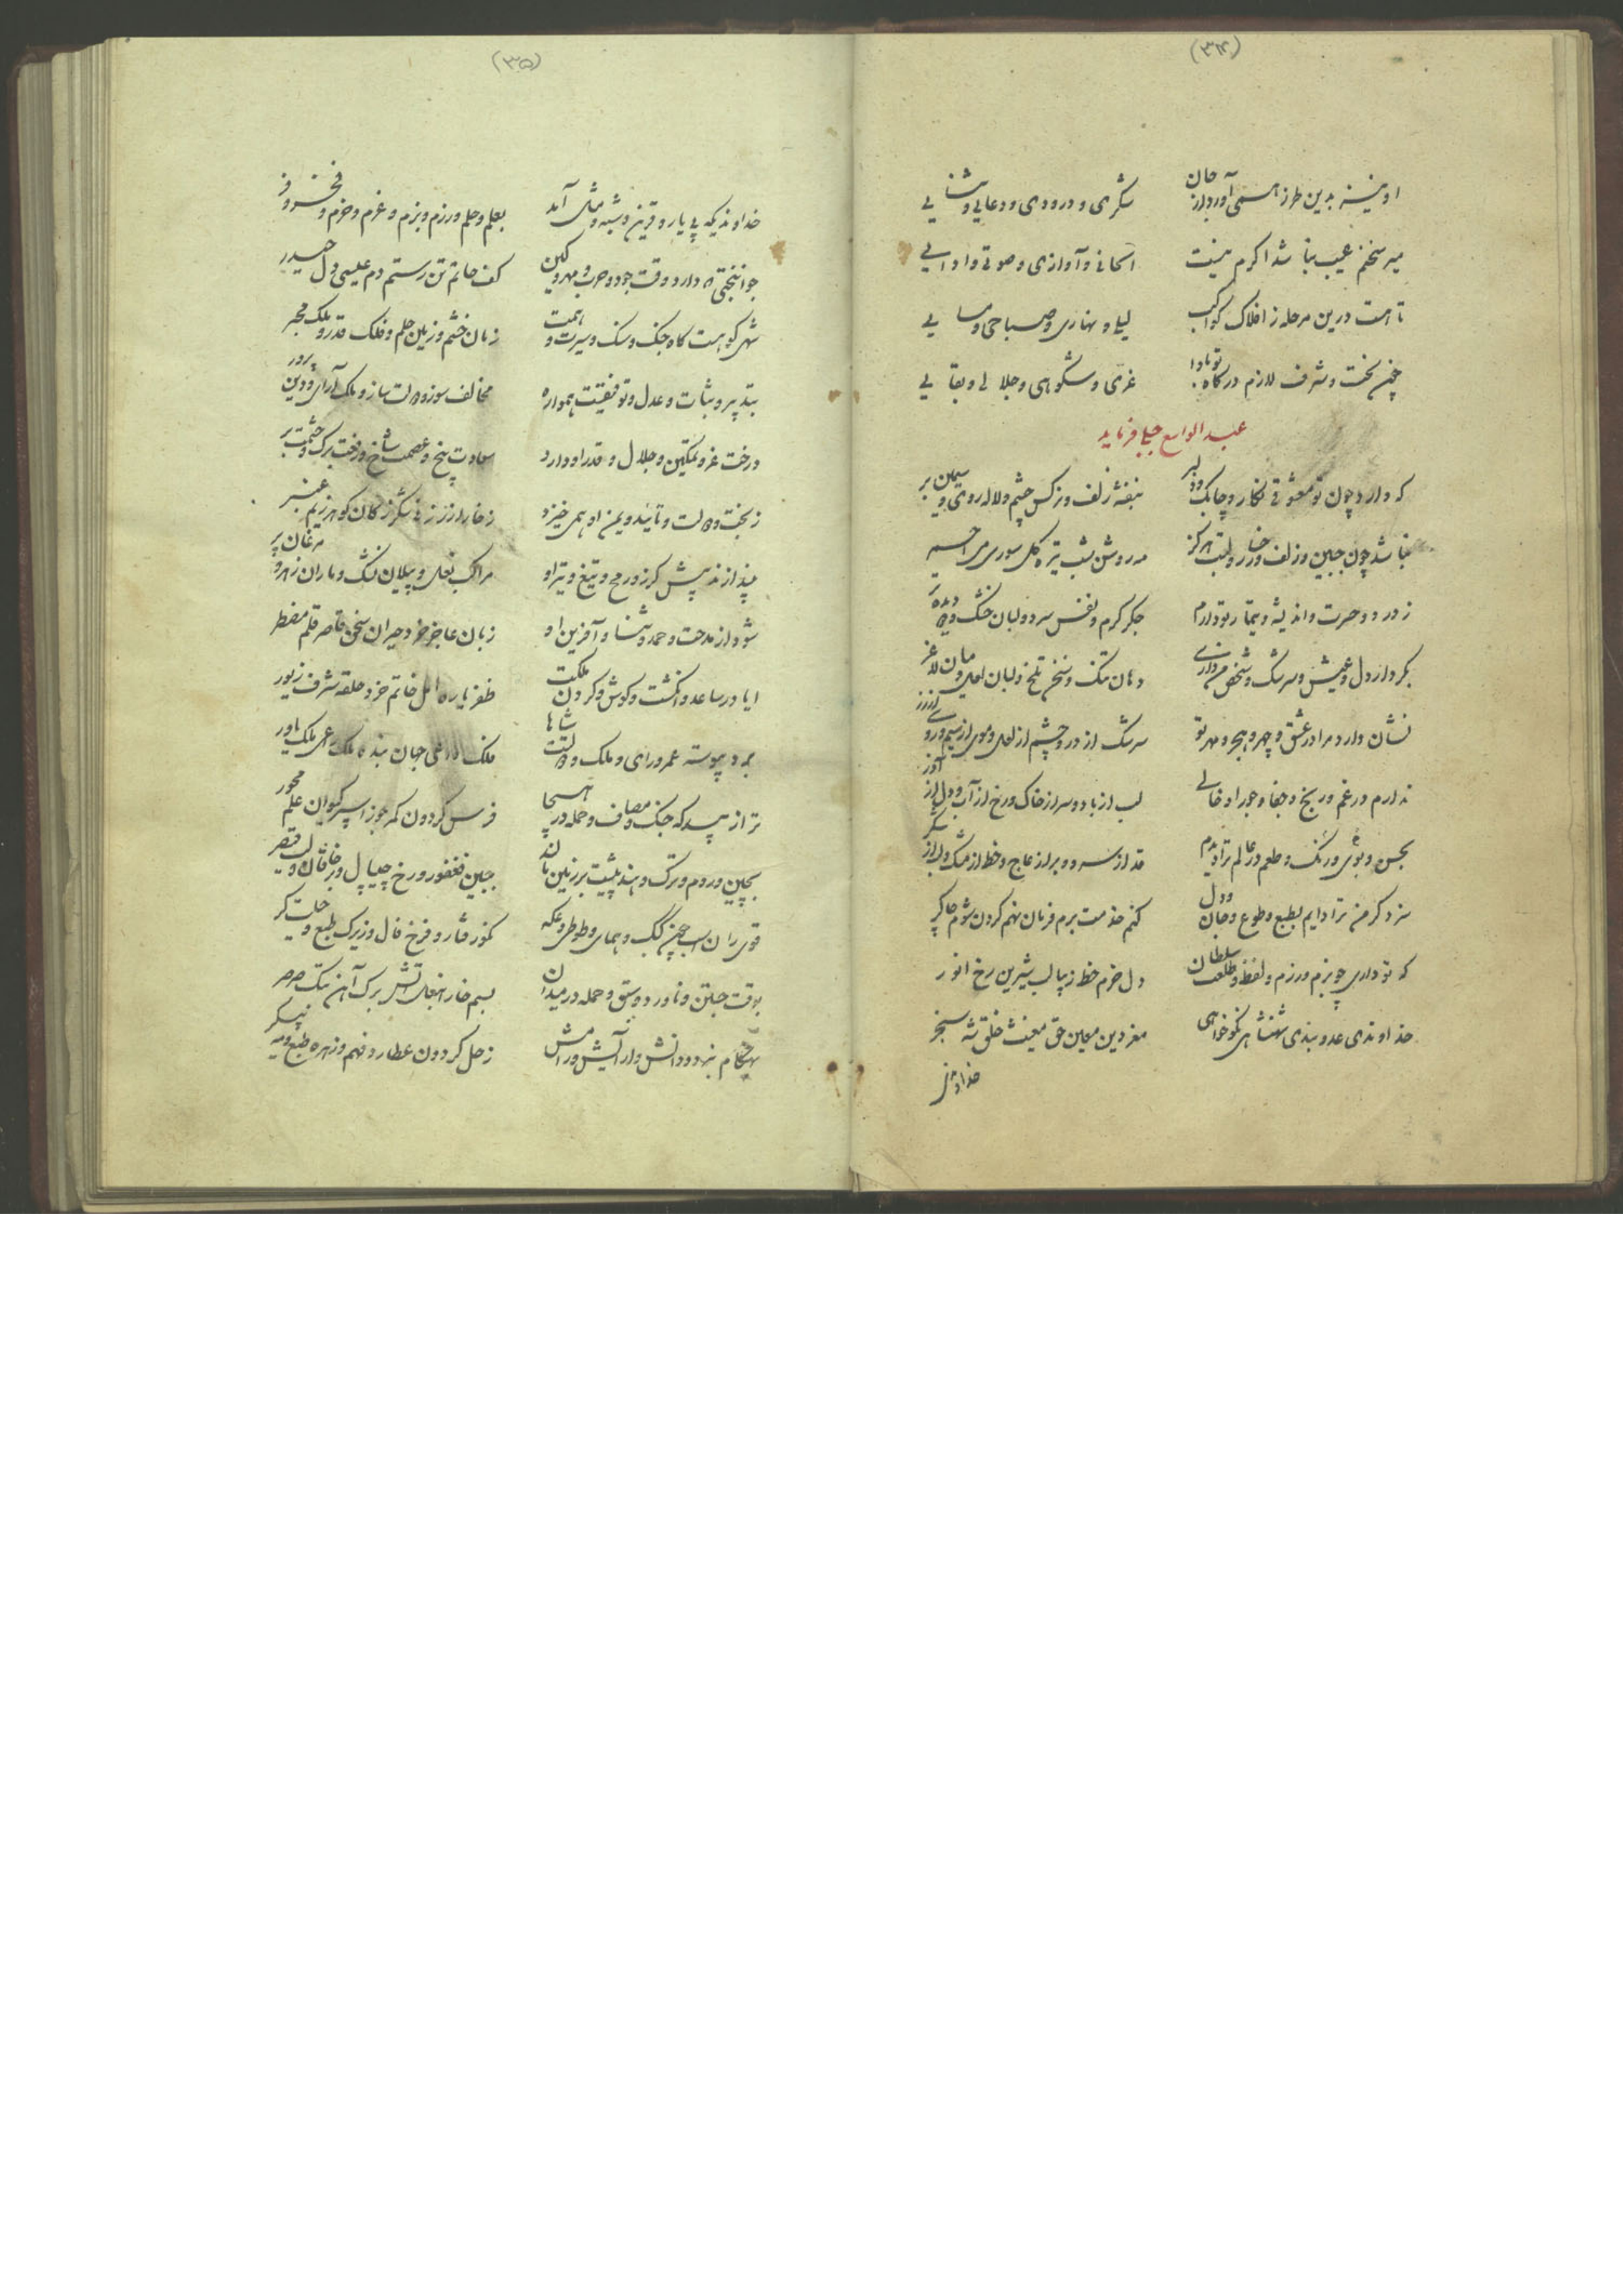 (۳۴)
او نیز بدین طرز همی آورد از جان
شکری و درودی و دعایی و ثنایی
میر سخنم عیب نباشد اگرم نیست
الحانی و آوازی و صوتی و ادایی
تا هست درین مرحله ز افلاک کواکب
لیل و نهاری و صباحی و مسایی
چون بخت و شرف لازم درگاه تو بادا
عزی و شکوهی و جلالی و بقایی
عبد الواسع جبلی فرماید
که دارد چون تو معشوقی نگار و چابک و دلبر
بنفشه زلف و نرکس چشم و لاله روی و سیمین بر
نباشد چون جبین و زلف و رخسار و لبت هرگز
مه روشن شب تیره گل سوری می احمر
ز درد و حسرت و اندیشه و تیمار تو دارم
جگر گرم و نفس سرد و لبان خشک و دیده تر
بکردار دل و عیش و سرشک و شخص من داری
دهان تنگ و سخن تلخ و لبان لعل و میان لاغر
نشان دارد مرا در عشق و چهر و هجر و مهر تو
سرشک از در و چشم از لعل و موی از سیم و روی از زر
ندارم در غم و رنج و جفا و جور او خالی
لب از باد و سر از خاک و رخ از آب و دل از آذر
بحسن و بوی و رنگ و طعم در عالم ترا دیدم
قد از سرو و بر از عاج و خط از مشک و لب از شکر
سزد کر من ترا دایم بطبع و طوع و جان و دل
کنم خدمت برم فرمان نهم گردن شوم چاکر
که تو داری چو بزم و رزم و لفظ و طلعت سلطان
دل خرم خط زیبا لب شیرین رخ انور
خداوندی عدو بندی شهنشاهی نکو خواهی
معز دین معین حق مغیث خلق شه سنجر
خداوندی
(۳۵)
خداوندیکه بی یار و قرین و شبه و مثل آمد
بعلم و حلم و رزم و بزم و عزم و حزم و فخر و فر
جوانبختی که دارد وقت جود و حرب و مهر و کین
کف حاتم تن رستم دم عیسی دل حیدر
شهی کو هست گاه جنگ و سنگ و سیرت و همت
زمان خشم و زمین حلم و فلک قدر و ملک مخبر
بتدبیر و ثبات و عدل و توفیقست همواره
مخالف سوز و دولت ساز و ملک آرای و دین پرور
درخت عز و تمکین و جلال و قدر او دارد
سعادت بیخ و عصمت شاخ و رفعت برگ و حشمت بر
ز بخت و دولت و تایید و یمن او همی خیزد
ز خار ز زر ز نی شکر ز کان گوهر ز یم عنبر
بیندازند پیش گرز و رمح و تیغ و تیر او
مراکب نعل و پیلان یشک و ماران زهر و مرغان پر
شود از مدحت و حمد و ثنا و آفرین او
زبان عاجز خرد حیران سخن قاصر قلم مضطر
ایا در ساعد و انگشت و گوش و گردن ملکت
ظفر یاره امل خاتم خرد حلقه شرف زیور
برد پیوسته عمر و رای و ملک و دولتت شاها
فلک داعی جهان بنده ملک راعی ملک یاور
ترا زیبد که جنگ و مصاف و حمله در هیجا
فرس گردون کمر جوزا سپر کیوان علم محور
بچین و روم و ترک و هند پشیت بر زمین ماند
جبین فغفور و رخ چیپال و بر خاقان و لب قیصر
بوقت جستن و ناورد و سبق و حمله در میدان
بسم خارا بنعل آتش برگ آهن بتک صرصر
بهنگام نبرد و دانش و آرایش و رامش
زحل گردون عطارد فهم و زهره طبع و مه پیکر